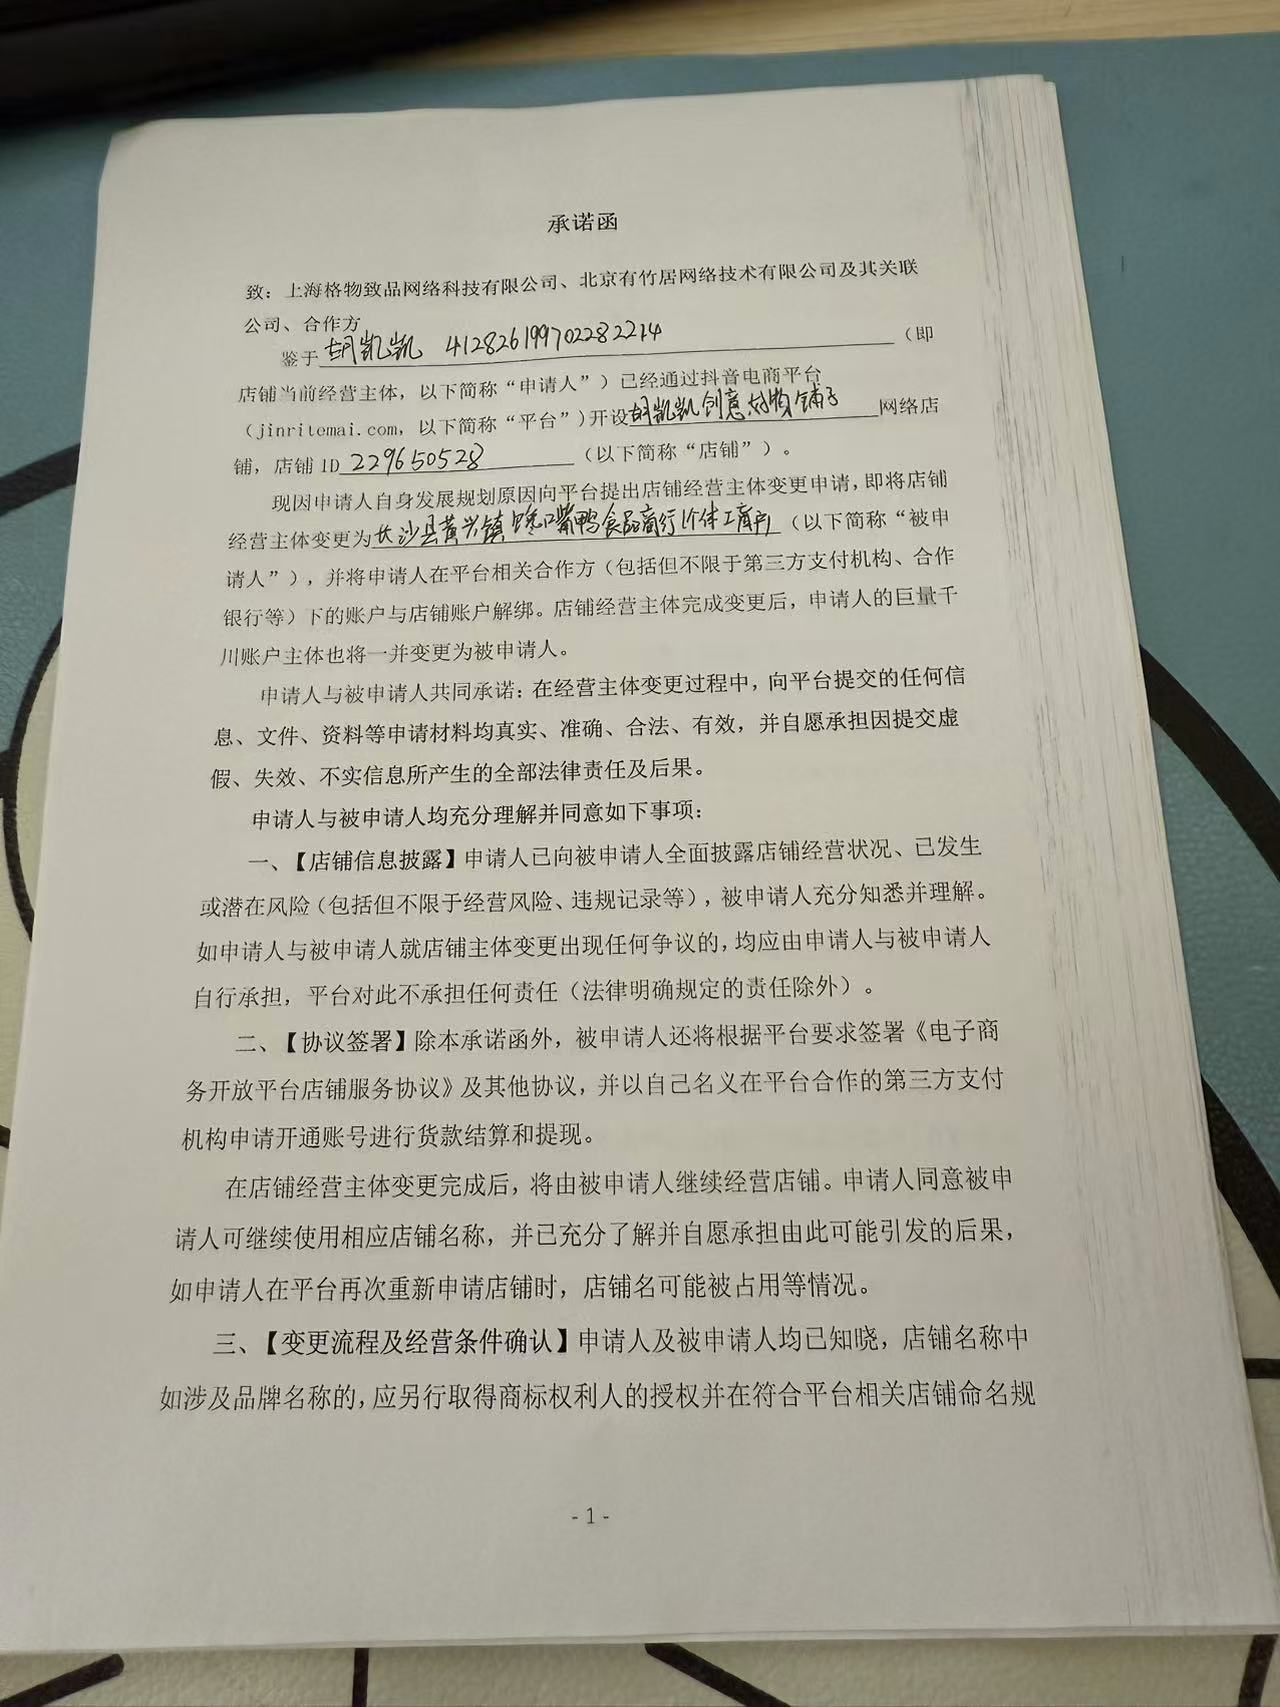 承诺函
致：上海格物致品网络科技有限公司、北京有竹居网络技术有限公司及其关联
公司、合作方
鉴于胡凯凯 412826199702282214（即
店铺当前经营主体，以下简称“申请人”）已经通过抖音电商平台
（jinritemai.com，以下简称“平台”）开设胡凯凯创意好物铺子网络店
铺，店铺ID 229650528（以下简称“店铺”）。
现因申请人自身发展规划原因向平台提出店铺经营主体变更申请，即将店铺
经营主体变更为长沙县黄兴镇馋口嘴鸭食品商行（个体工商户）（以下简称“被申
请人”），并将申请人在平台相关合作方（包括但不限于第三方支付机构、合作
银行等）下的账户与店铺账户解绑。店铺经营主体完成变更后，申请人的巨量千
川账户主体也将一并变更为被申请人。
申请人与被申请人共同承诺：在经营主体变更过程中，向平台提交的任何信
息、文件、资料等申请材料均真实、准确、合法、有效，并自愿承担因提交虚
假、失效、不实信息所产生的全部法律责任及后果。
申请人与被申请人均充分理解并同意如下事项：
一、【店铺信息披露】申请人已向被申请人全面披露店铺经营状况、已发生
或潜在风险（包括但不限于经营风险、违规记录等），被申请人充分知悉并理解。
如申请人与被申请人就店铺主体变更出现任何争议的，均应由申请人与被申请人
自行承担，平台对此不承担任何责任（法律明确规定的责任除外）。
二、【协议签署】除本承诺函外，被申请人还将根据平台要求签署《电子商
务开放平台店铺服务协议》及其他协议，并以自己名义在平台合作的第三方支付
机构申请开通账号进行货款结算和提现。
在店铺经营主体变更完成后，将由被申请人继续经营店铺。申请人同意被申
请人可继续使用相应店铺名称，并已充分了解并自愿承担由此可能引发的后果，
如申请人在平台再次重新申请店铺时，店铺名可能被占用等情况。
三、【变更流程及经营条件确认】申请人及被申请人均已知晓，店铺名称中
如涉及品牌名称的，应另行取得商标权利人的授权并在符合平台相关店铺命名规
- 1 -